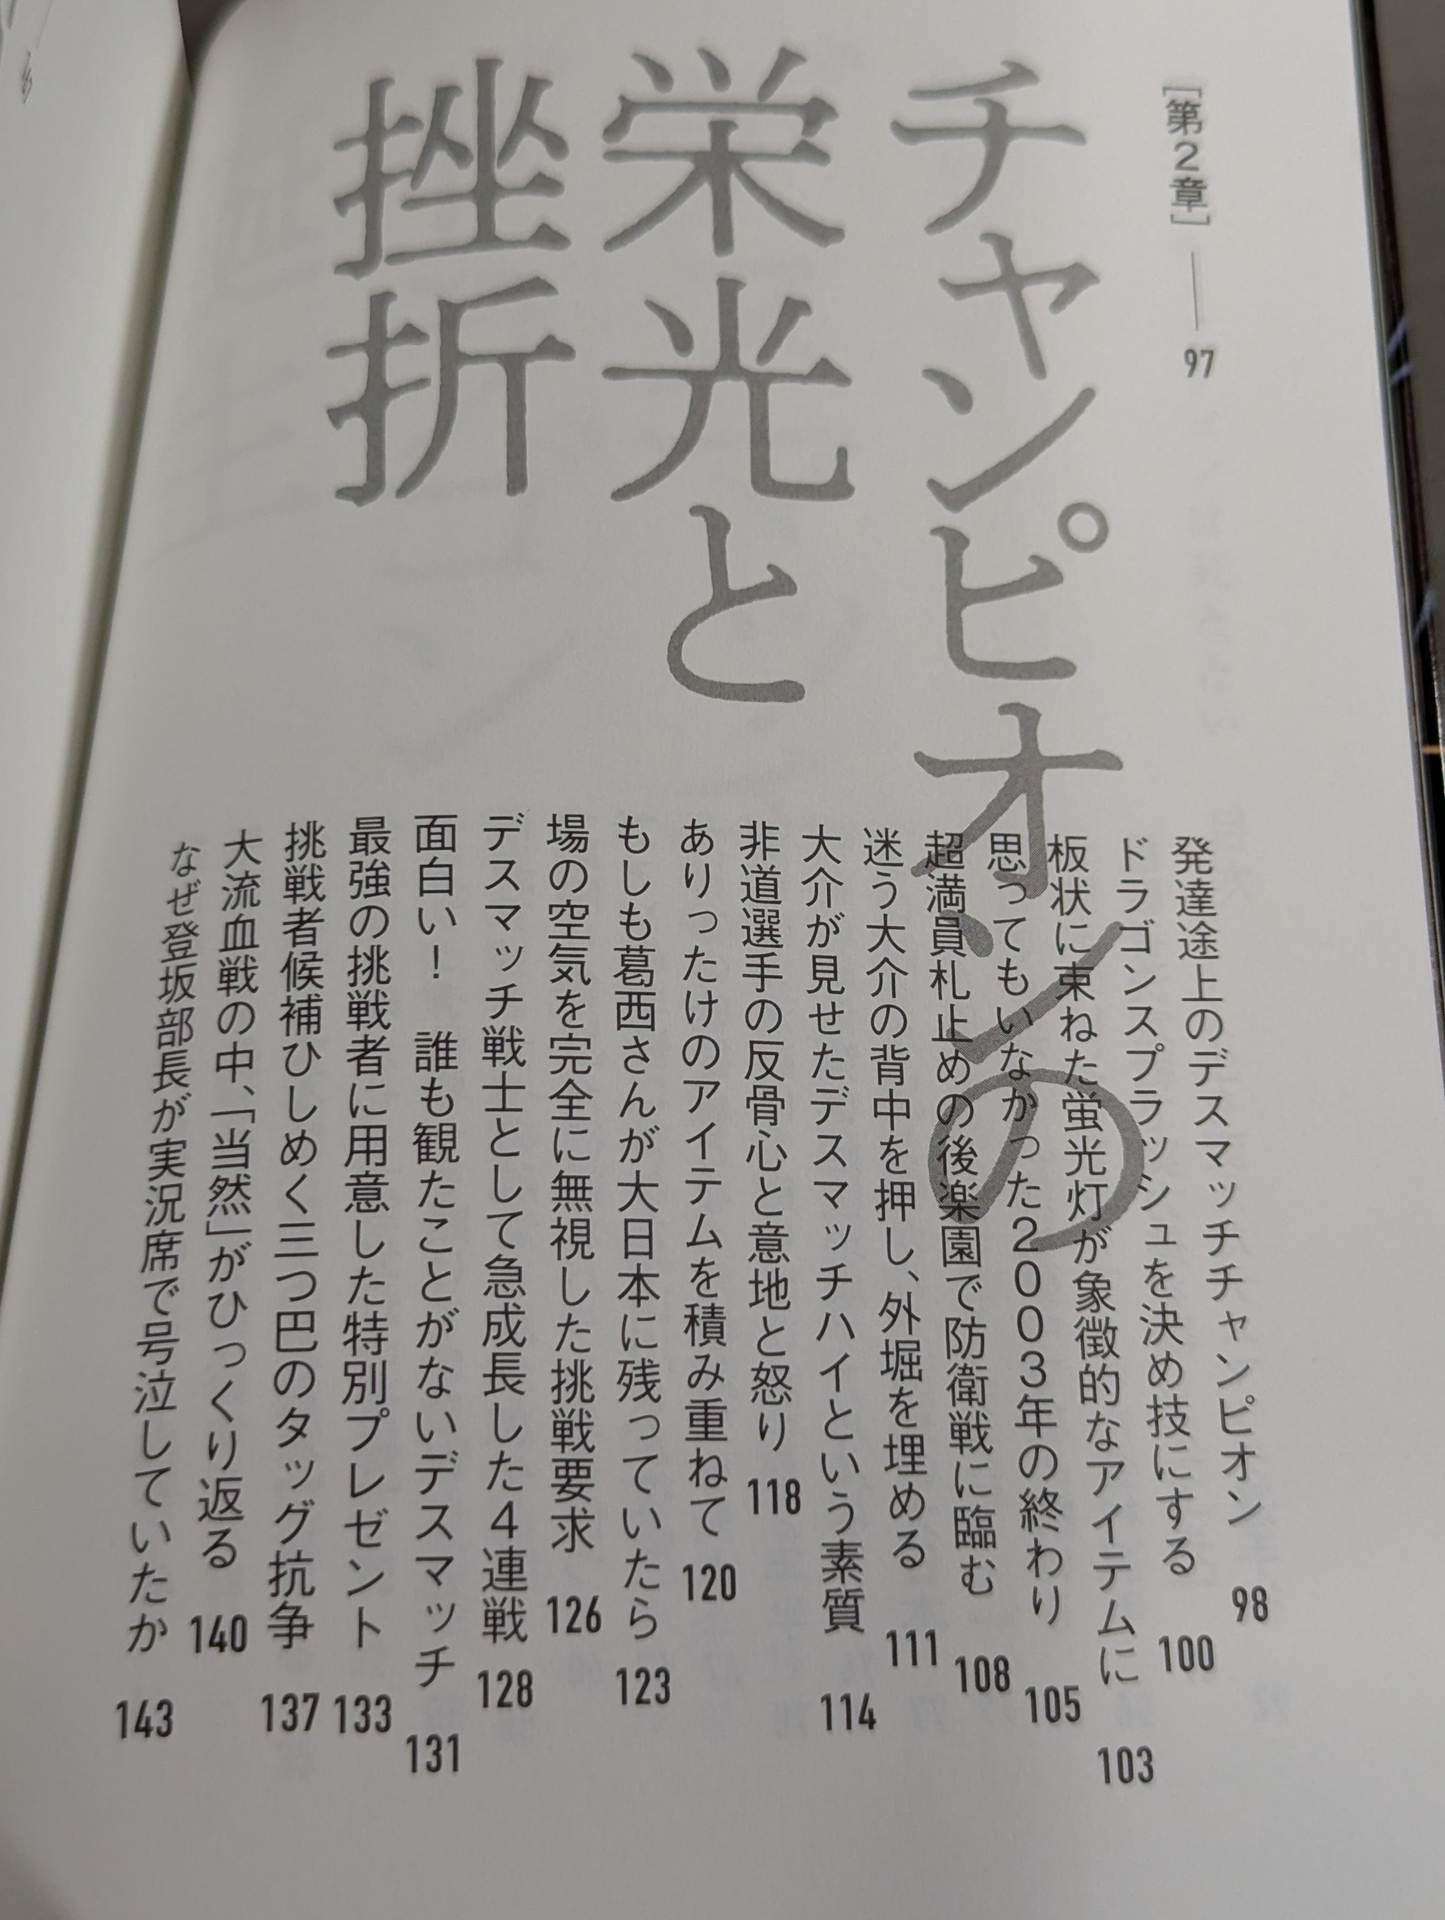 ［第2章］――97
チャンピオンの
栄光と
挫折
発達途上のデスマッチチャンピオン 98
ドラゴンスプラッシュを決め技にする 100
板状に束ねた蛍光灯が象徴的なアイテムに 103
思ってもいなかった2003年の終わり 105
超満員札止めの後楽園で防衛戦に臨む 108
迷う大介の背中を押し、外堀を埋める 111
大介が見せたデスマッチハイという素質 114
非道選手の反骨心と意地と怒り 118
ありったけのアイテムを積み重ねて 120
もしも葛西さんが大日本に残っていたら 123
場の空気を完全に無視した挑戦要求 126
デスマッチ戦士として急成長した4連戦 128
面白い！　誰も観たことがないデスマッチ 131
最強の挑戦者に用意した特別プレゼント 133
挑戦者候補ひしめく三つ巴のタッグ抗争 137
大流血戦の中、「当然」がひっくり返る 140
なぜ登坂部長が実況席で号泣していたか 143